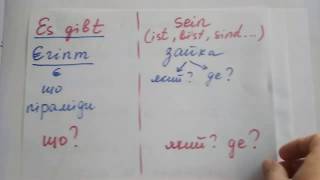 Es gibt
Єгипт
є
що
піраміди
що?
sein
(ist, bist, sind...)
зайка
який? де?
який? де?